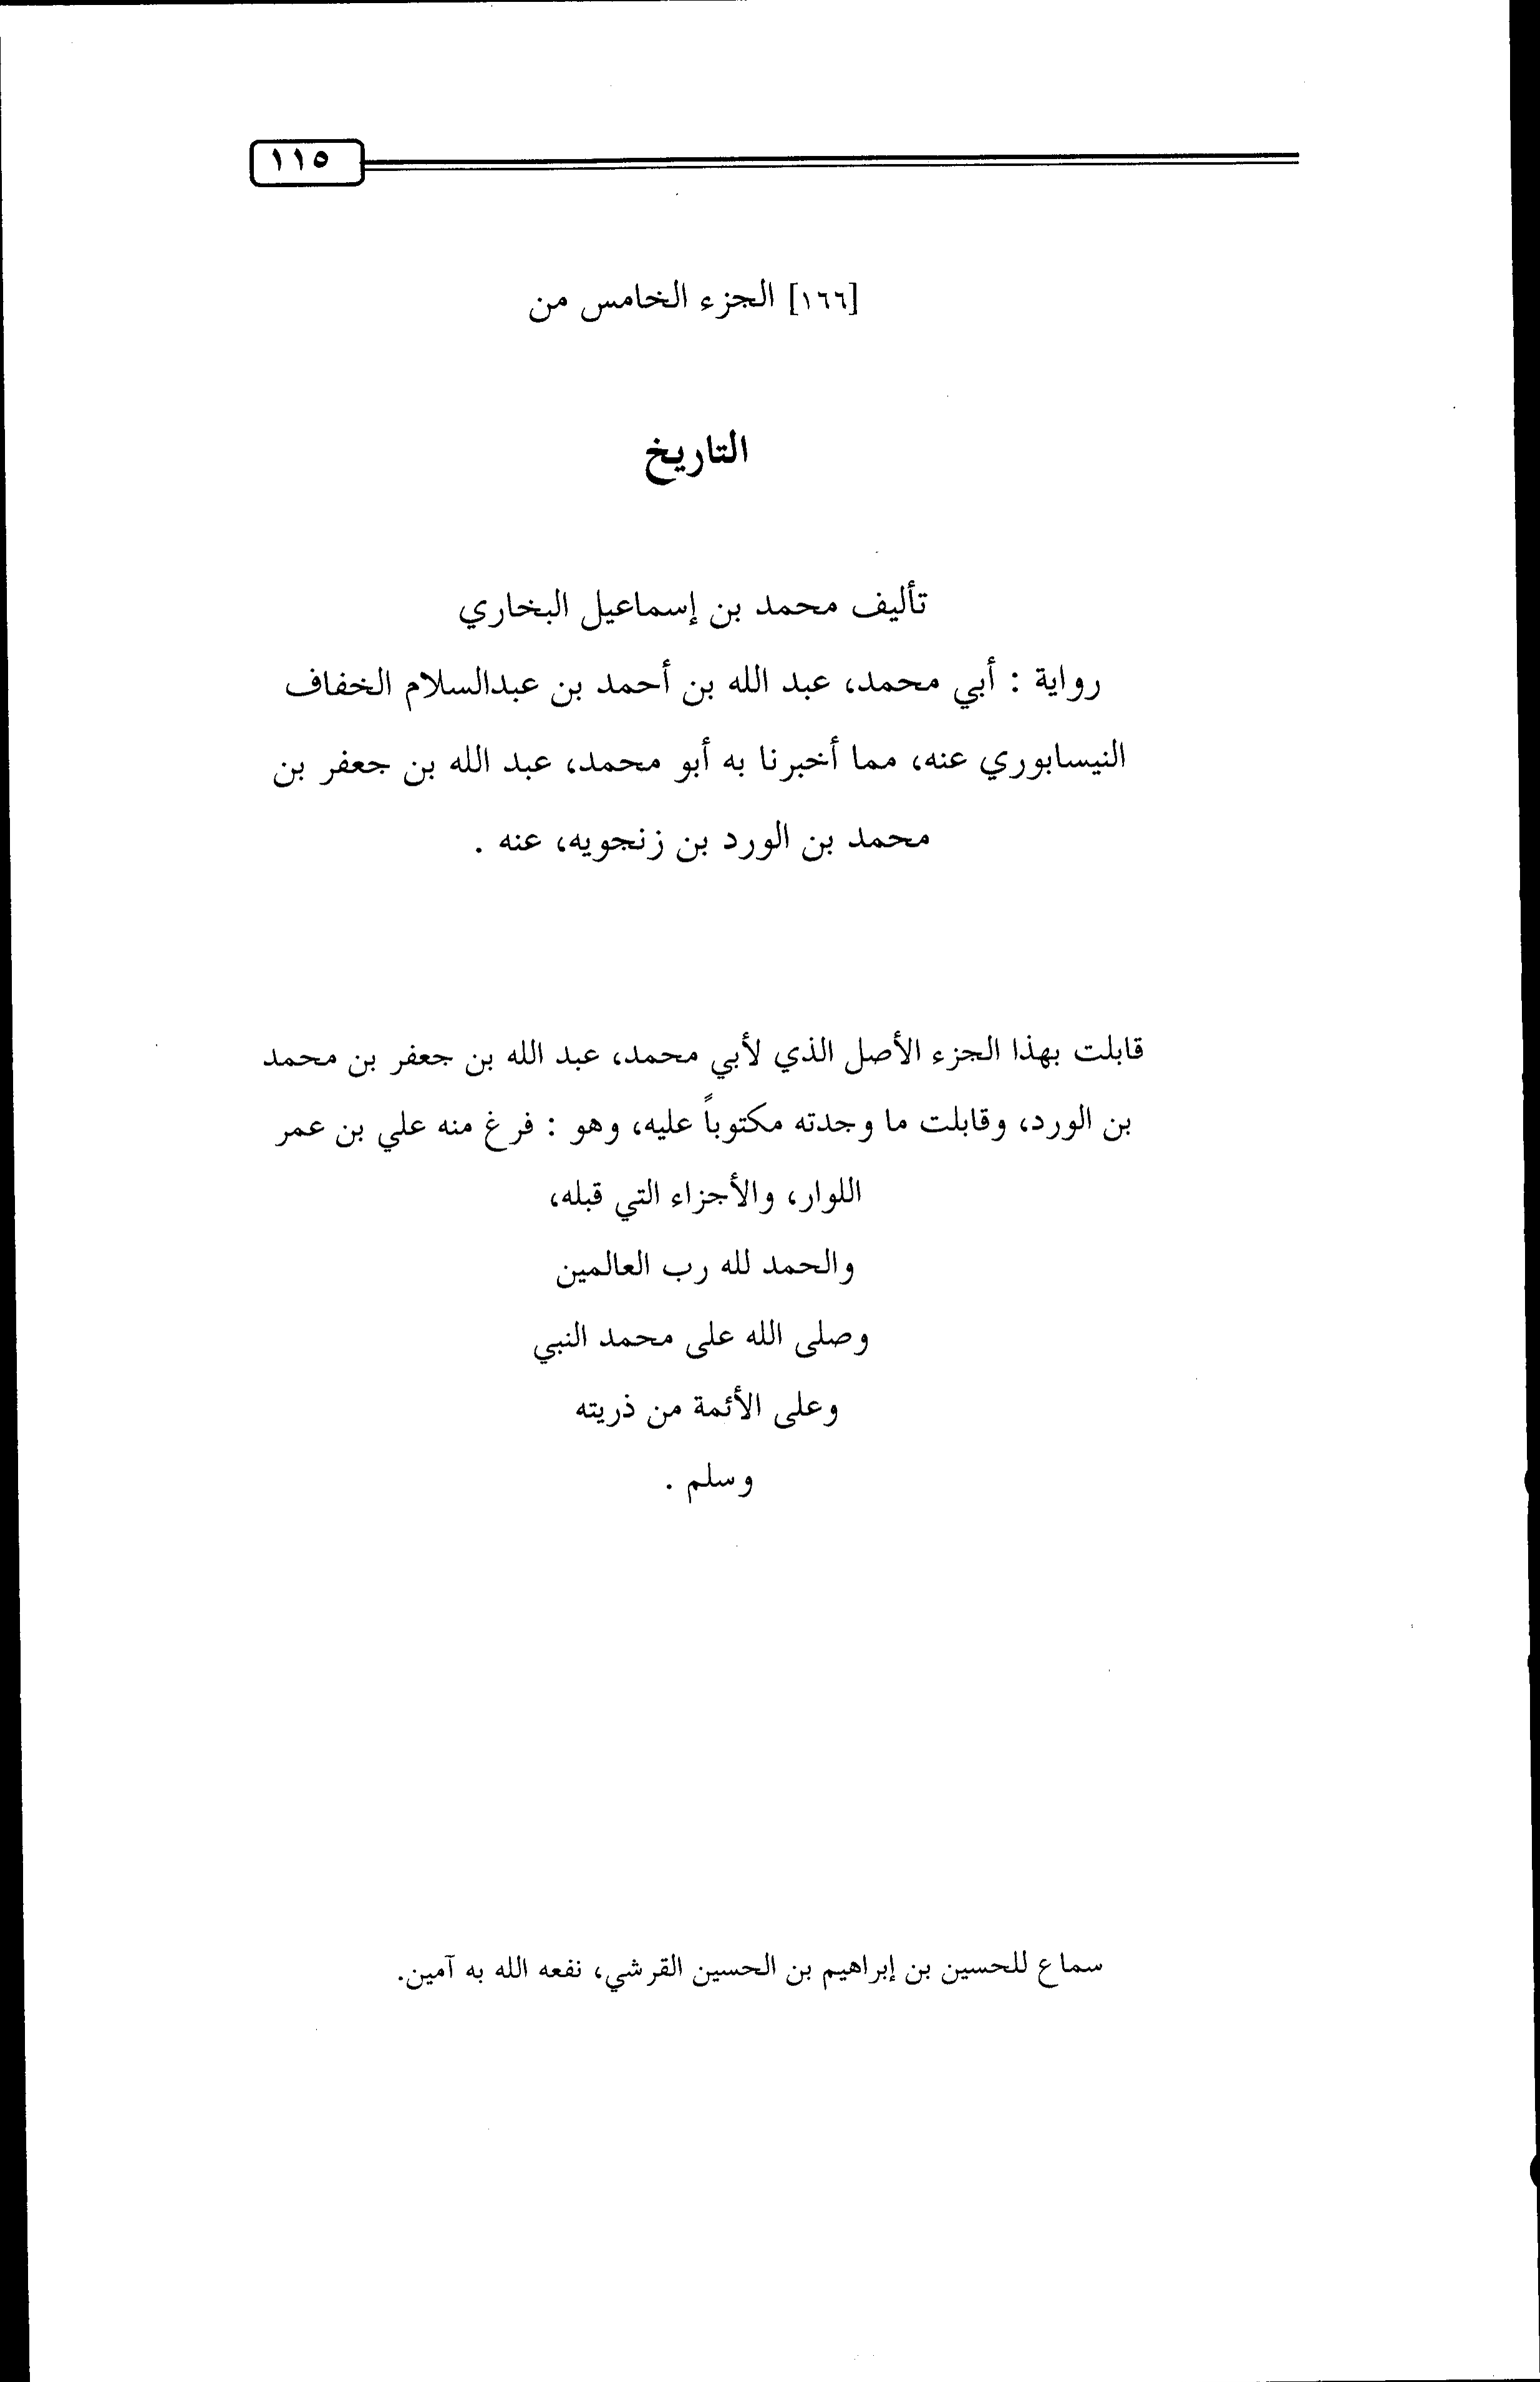 ١١٥
[١٦٦] الجزء الخامس من
التاريخ
تأليف محمد بن إسماعيل البخاري
رواية : أبي محمد، عبد الله بن أحمد بن عبدالسلام الخفاف
النيسابوري عنه، مما أخبرنا به أبو محمد، عبد الله بن جعفر بن
محمد بن الورد بن زنجويه، عنه .
قابلت بهذا الجزء الأصل الذي لأبي محمد، عبد الله بن جعفر بن محمد
بن الورد، وقابلت ما وجدته مكتوباً عليه، وهو : فرغ منه علي بن عمر
اللوار، والأجزاء التي قبله،
والحمد لله رب العالمين
وصلى الله على محمد النبي
وعلى الأئمة من ذريته
وسلم .
سماع للحسين بن إبراهيم بن الحسين القرشي، نفعه الله به آمين.